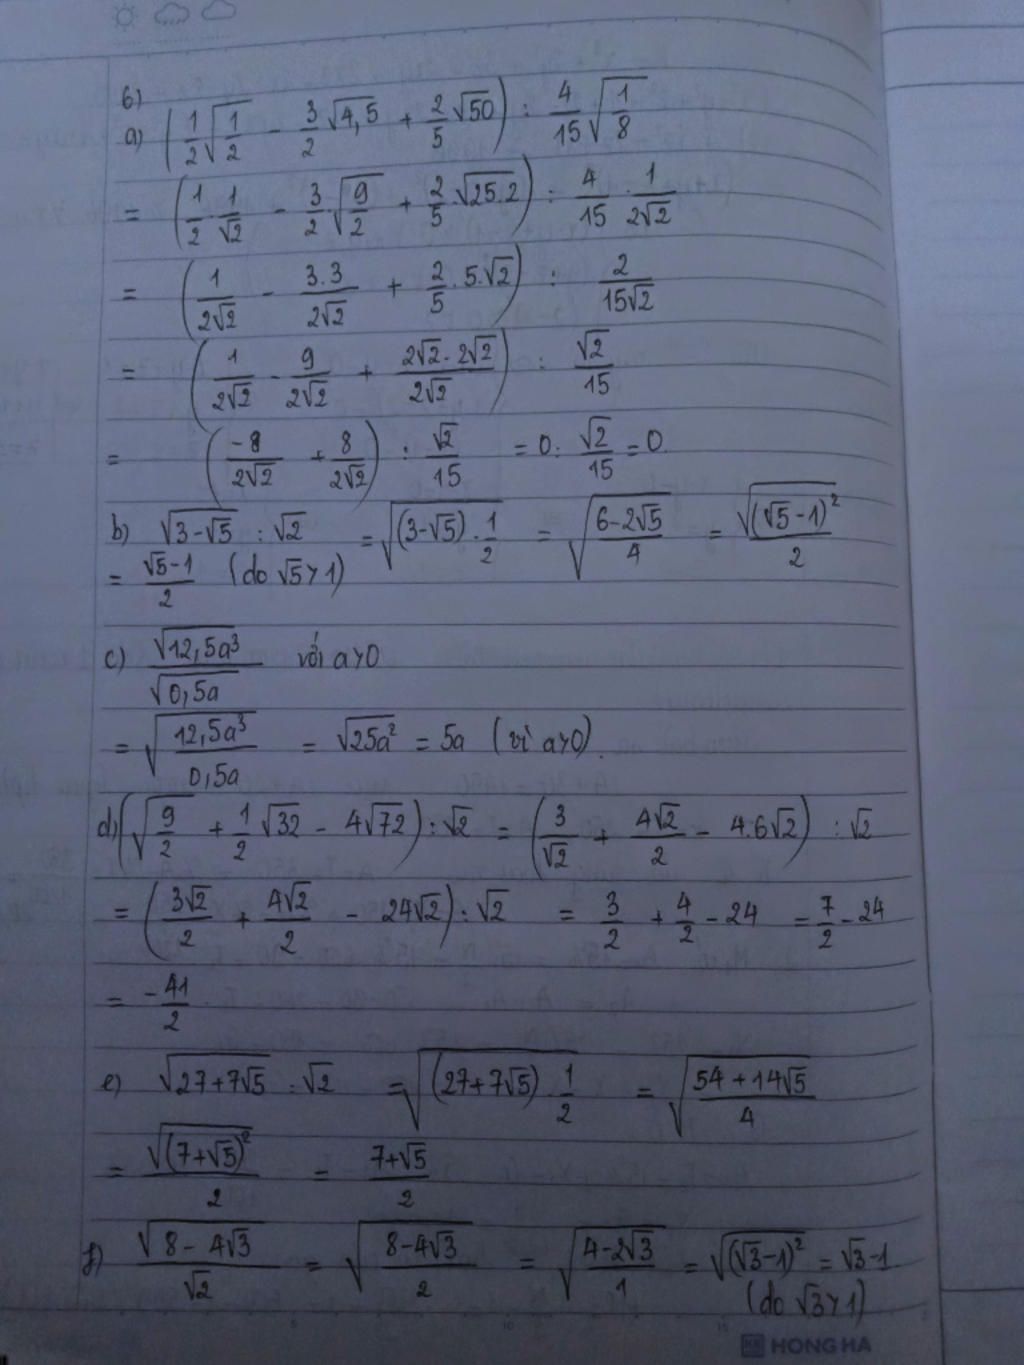 6)
a) (1/2 √(1/2) - 3/2 √4,5 + 2/5 √50) : 4/15 √(1/8)
= (1/2 . 1/√2 - 3/2 √(9/2) + 2/5 . √25.2) : 4/15 . 1/2√2
= (1/2√2 - 3.3/2√2 + 2/5 . 5.√2) : 2/15√2
= (1/2√2 - 9/2√2 + 2√2.2√2/2√2) : √2/15
= (-8/2√2 + 8/2√2) : √2/15 = 0 : √2/15 = 0
b) √(3-√5) : √2 = √((3-√5) . 1/2) = √((6-2√5)/4) = √((√5-1)²)/2
= (√5-1)/2 (do √5>1)
c) √(12,5a³)/√(0,5a) với a>0
= √(12,5a³/0,5a) = √(25a²) = 5a (vì a>0).
d) (√(9/2) + 1/2 √32 - 4√72) : √2 = (3/√2 + 4√2/2 - 4.6√2) : √2
= (3√2/2 + 4√2/2 - 24√2) : √2 = 3/2 + 4/2 - 24 = 7/2 - 24
= -41/2
e) √(27+7√5) : √2 = √((27+7√5) . 1/2) = √((54+14√5)/4)
= √((7+√5)²)/2 = (7+√5)/2
f) √(8-4√3)/√2 = √((8-4√3)/2) = √((4-2√3)/1) = √((√3-1)²) = √3-1
(do √3>1)
HONG HA